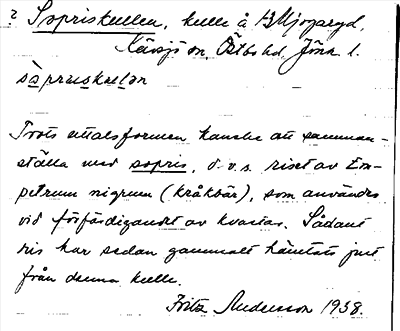 ? Sopriskullen, kulle å Mjogaryd,
Kävsjö sn, Östbo hd, Jönk. l.
sòpruskulan
Trots uttalsformen kanske att samman-
ställa med sopris, d.v.s. riset av Em-
petrum nigrum (kråkbär), som användes
vid förfärdigandet av kvastar. Sådant
ris har sedan gammalt hämtats just
från denna kulle.
Fritz Andersson 1938.